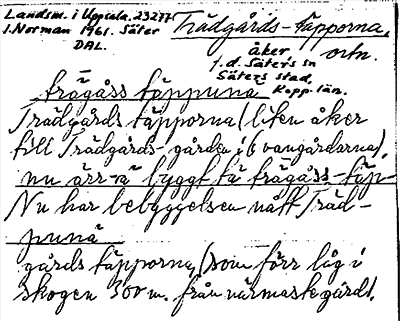 Landsm. i Uppsala. 23277
I. Norman 1961. Säter
DAL.
Trädgårds-täpporna,
åker
ortn.
f.d. Säters sn
Säters stad,
Kopp. län.
trågåss täppuna
Trädgårds täpporna (liten åker
till Trädgårds-gården i (6 vangårdarna),
nu ärr-ä byggt tä trågåss-täp-
Nu har bebyggelsen nått Träd-
puna
gårds täpporna, (som förr låg i
skogen 300 m. från närmaste gård).